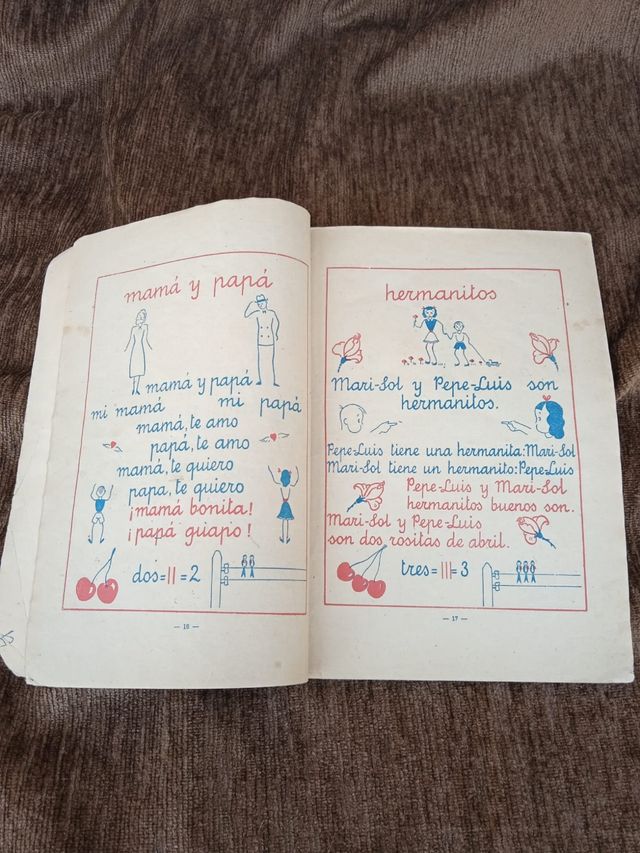 mamá y papá
mamá y papá
mi mamá mi papá
mamá, te amo
papá, te amo
mamá, te quiero
papa, te quiero
¡mamá bonita!
¡papá guapo!
dos=||=2
— 16 —
hermanitos
Mari-Sol y Pepe-Luis son
hermanitos.
Pepe-Luis tiene una hermanita:Mari-Sol
Mari-Sol tiene un hermanito:Pepe-Luis
Pepe-Luis y Mari-Sol
hermanitos buenos son.
Mari-Sol y Pepe-Luis
son dos rositas de abril.
tres=|||=3
— 17 —